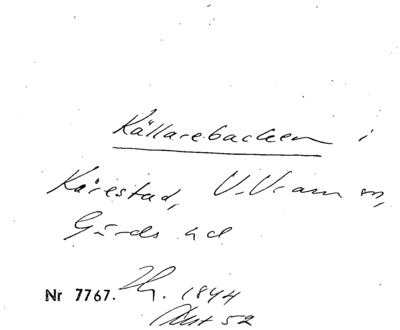 Källarebacken i
Kårestad, V. Vram sn,
Gärds hd
Nr 7767. 1844
Akt 52